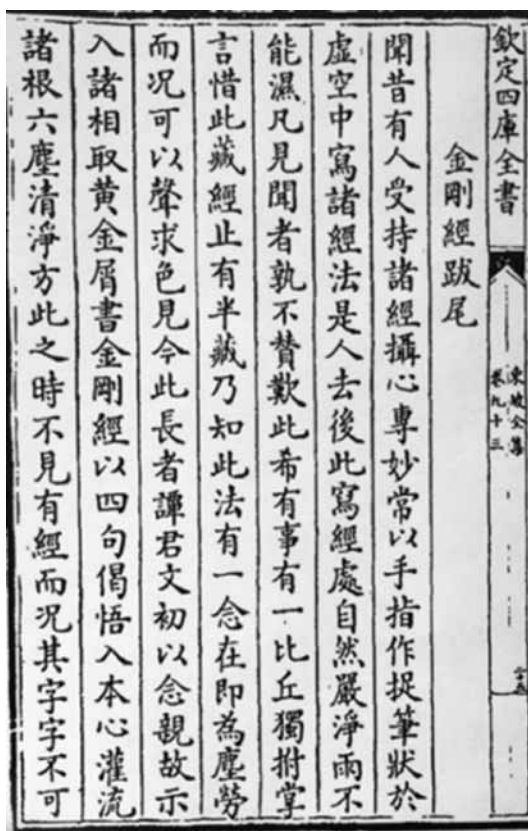 欽定四庫全書
東坡全集
卷九十三
金剛經跋尾
聞昔有人受持諸經攝心專妙常以手指作捉筆狀於
虛空中寫諸經法是人去後此寫經處自然嚴淨雨不
能濕凡見聞者孰不贊歎此希有事有一比丘獨拊掌
言惜此藏經止有半藏乃知此法有一念在即為塵勞
而况可以聲求色見今此長者譚君文初以念親故示
入諸相取黄金屑書金剛經以四句偈悟入本心灌流
諸根六塵清淨方此之時不見有經而况其字字不可